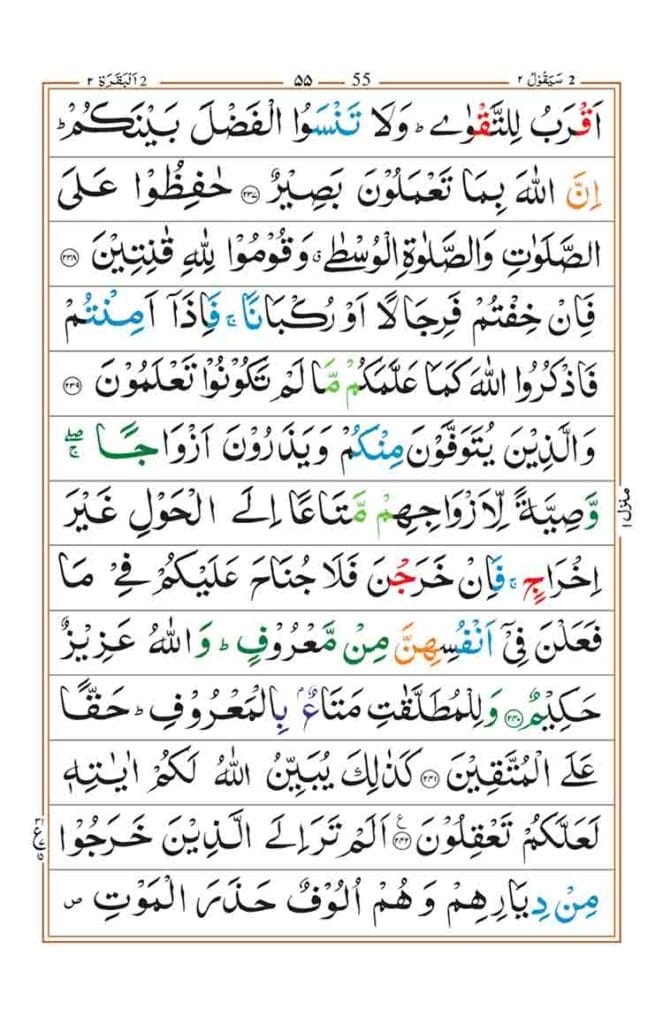 2 سَیَقُوْلُ ٢ 55 ۵۵ 2 اَلْبَقَرَة ٢
اَقْرَبُ لِلتَّقْوٰىؕ وَلَا تَنْسَوُا الْفَضْلَ بَیْنَكُمْؕ
اِنَّ اللّٰهَ بِمَا تَعْمَلُوْنَ بَصِیْرٌ ﴿۲۳۷﴾ حٰفِظُوْا عَلَى
الصَّلَوٰتِ وَالصَّلٰوةِ الْوُسْطٰىۗ وَقُوْمُوْا لِلّٰهِ قٰنِتِیْنَ ﴿۲۳۸﴾
فَاِنْ خِفْتُمْ فَرِجَالًا اَوْ رُكْبَانًاۚ فَاِذَاۤ اَمِنْتُمْ
فَاذْكُرُوا اللّٰهَ كَمَا عَلَّمَكُمْ مَّا لَمْ تَكُوْنُوْا تَعْلَمُوْنَ ﴿۲۳۹﴾
وَالَّذِیْنَ یُتَوَفَّوْنَ مِنْكُمْ وَیَذَرُوْنَ اَزْوَاجًاۖۚ
وَّصِیَّةً لِّاَزْوَاجِهِمْ مَّتَاعًا اِلَى الْحَوْلِ غَیْرَ
اِخْرَاجٍۚ فَاِنْ خَرَجْنَ فَلَا جُنَاحَ عَلَیْكُمْ فِیْ مَا
فَعَلْنَ فِیْۤ اَنْفُسِهِنَّ مِنْ مَّعْرُوْفٍؕ وَاللّٰهُ عَزِیْزٌ
حَكِیْمٌ ﴿۲۴۰﴾ وَلِلْمُطَلَّقٰتِ مَتَاعٌۢ بِالْمَعْرُوْفِؕ حَقًّا
عَلَى الْمُتَّقِیْنَ ﴿۲۴۱﴾ كَذٰلِكَ یُبَیِّنُ اللّٰهُ لَكُمْ اٰیٰتِهٖ
لَعَلَّكُمْ تَعْقِلُوْنَ ﴿۲۴۲﴾ۧ اَلَمْ تَرَ اِلَى الَّذِیْنَ خَرَجُوْا
مِنْ دِیَارِهِمْ وَهُمْ اُلُوْفٌ حَذَرَ الْمَوْتِ۪
منزل ۱